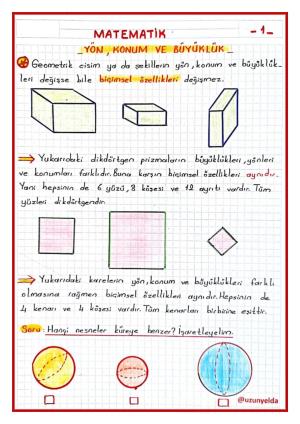 MATEMATİK
- 1 -
YÖN, KONUM VE BÜYÜKLÜK
Geometrik cisim ya da şekillerin yön, konum ve büyüklük-
leri değişse bile biçimsel özellikleri değişmez.
Yukarıdaki dikdörtgen prizmaların büyüklükleri, yönleri
ve konumları farklıdır. Buna karşın biçimsel özellikleri aynıdır.
Yani hepsinin de 6 yüzü, 8 köşesi ve 12 ayrıtı vardır. Tüm
yüzleri dikdörtgendir.
Yukarıdaki karelerin yön, konum ve büyüklükleri farklı
olmasına rağmen biçimsel özellikleri aynıdır. Hepsinin de
4 kenarı ve 4 köşesi vardır. Tüm kenarları birbirine eşittir.
Soru: Hangi nesneler küreye benzer? İşaretleyelim.
@uzunyelda